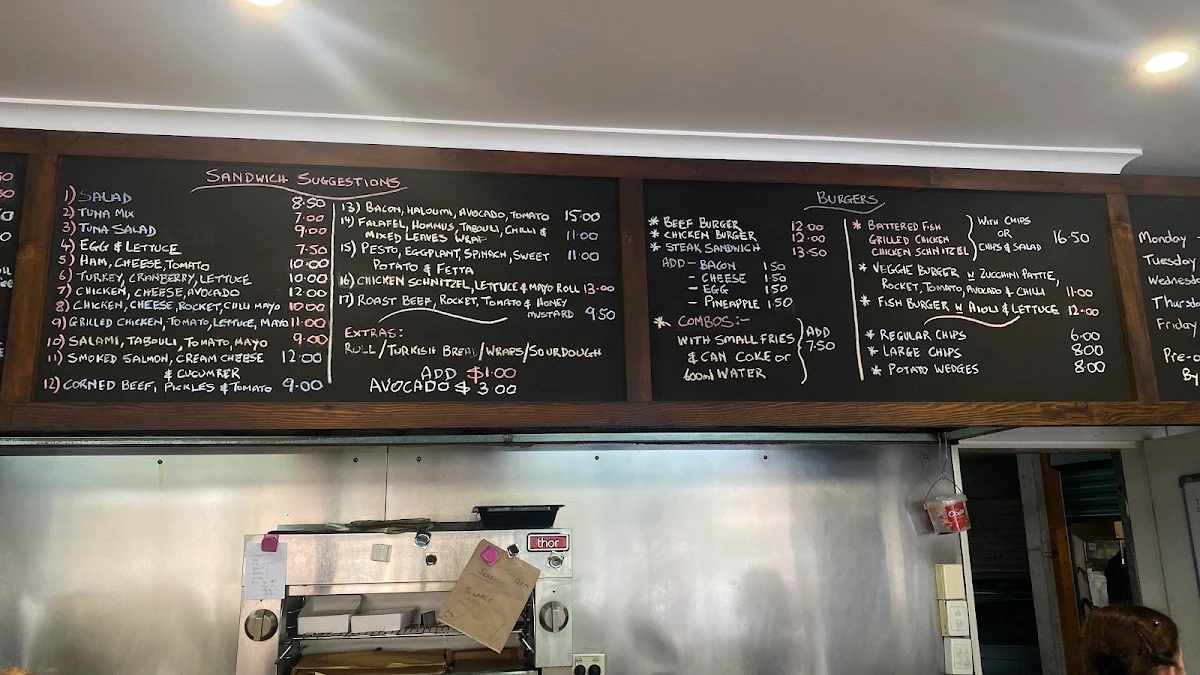 SANDWICH SUGGESTIONS
1) SALAD 8.50
2) TUNA MIX 7.00
3) TUNA SALAD 9.00
4) EGG & LETTUCE 7.50
5) HAM, CHEESE, TOMATO 10.00
6) TURKEY, CRANBERRY, LETTUCE 10.00
7) CHICKEN, CHEESE, AVOCADO 12.00
8) CHICKEN, CHEESE, ROCKET, CHILLI MAYO 10.00
9) GRILLED CHICKEN, TOMATO, LETTUCE, MAYO 11.00
10) SALAMI, TABOULI, TOMATO, MAYO 9.00
11) SMOKED SALMON, CREAM CHEESE 12.00
& CUCUMBER
12) CORNED BEEF, PICKLES & TOMATO 9.00
13) BACON, HALOUMI, AVOCADO, TOMATO 15.00
14) FALAFEL, HOMMUS, TABOULI, CHILLI &
MIXED LEAVES WRAP 11.00
15) PESTO, EGGPLANT, SPINACH, SWEET 11.00
POTATO & FETTA
16) CHICKEN SCHNITZEL, LETTUCE & MAYO ROLL 13.00
17) ROAST BEEF, ROCKET, TOMATO & HONEY
MUSTARD 9.50
EXTRAS:
ROLL/TURKISH BREAD/WRAPS/SOURDOUGH
ADD $1.00
AVOCADO $3.00
BURGERS
* BEEF BURGER 12.00
* CHICKEN BURGER 12.00
* STEAK SANDWICH 13.50
ADD - BACON 1.50
- CHEESE 1.50
- EGG 1.50
- PINEAPPLE 1.50
* COMBOS:-
WITH SMALL FRIES
& CAN COKE OR
600ml WATER
ADD
7.50
* BATTERED FISH
GRILLED CHICKEN
CHICKEN SCHNITZEL
WITH CHIPS
OR
CHIPS & SALAD
16.50
* VEGGIE BURGER W ZUCCHINI PATTIE,
ROCKET, TOMATO, AVOCADO & CHILLI 11.00
* FISH BURGER W AIOLI & LETTUCE 12.00
* REGULAR CHIPS 6.00
* LARGE CHIPS 8.00
* POTATO WEDGES 8.00
Monday -
Tuesday
Wednes
Thursd
Friday
Pre-o
By
thor